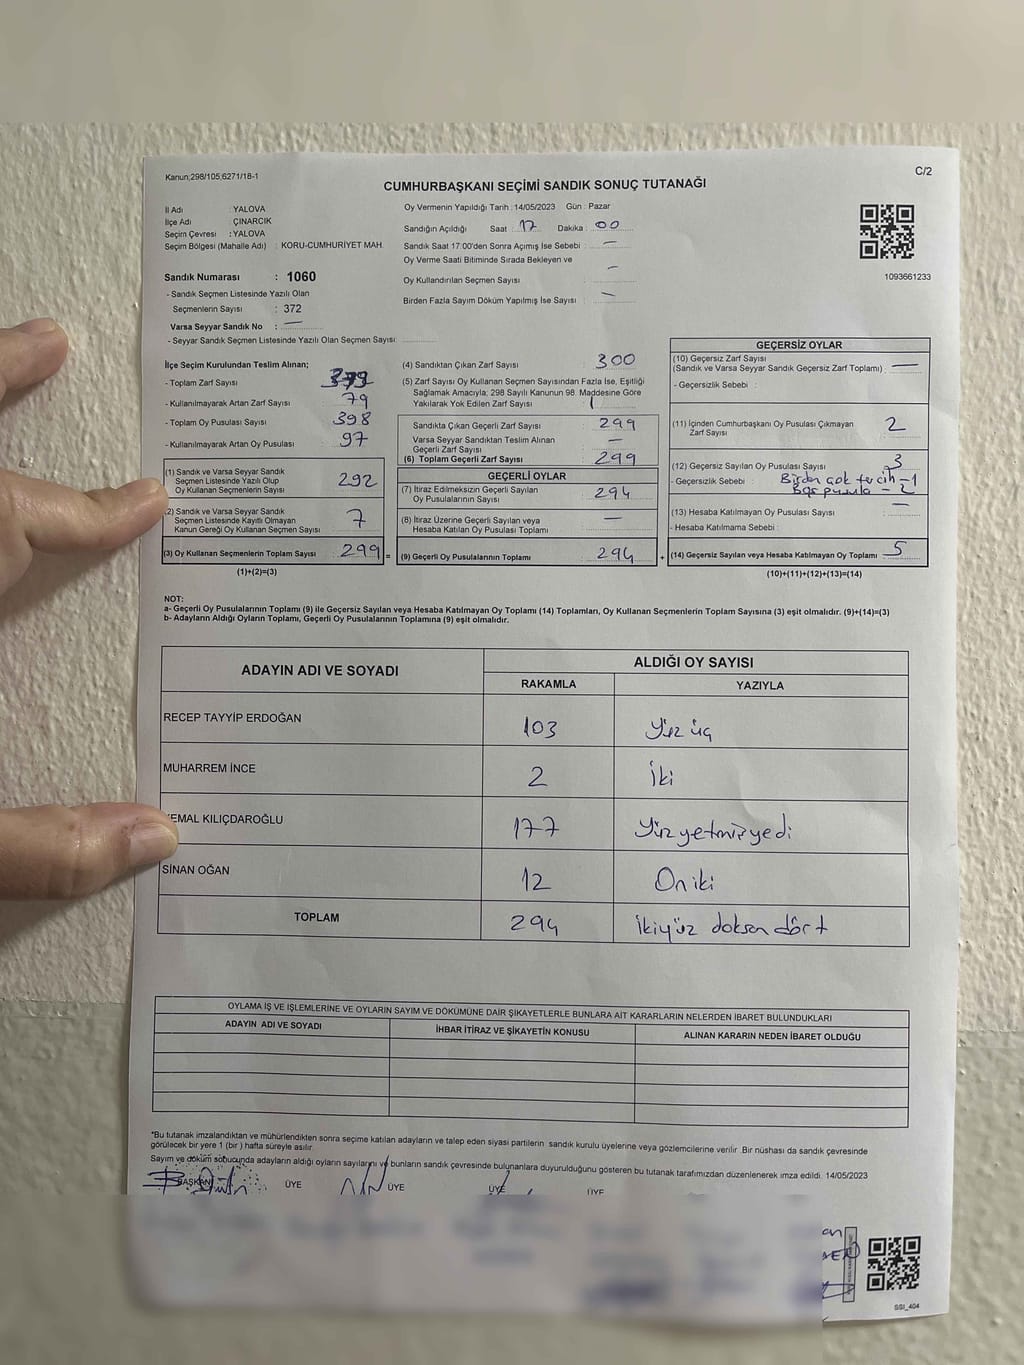 Kanun;298/105;6271/18-1
C/2
CUMHURBAŞKANI SEÇİMİ SANDIK SONUÇ TUTANAĞI
İl Adı : YALOVA
İlçe Adı : ÇINARCIK
Seçim Çevresi : YALOVA
Seçim Bölgesi (Mahalle Adı) : KORU-CUMHURİYET MAH.
Sandık Numarası : 1060
- Sandık Seçmen Listesinde Yazılı Olan
Seçmenlerin Sayısı : 372
Varsa Seyyar Sandık No : —
- Seyyar Sandık Seçmen Listesinde Yazılı Olan Seçmen Sayısı:
Oy Vermenin Yapıldığı Tarih : 14/05/2023 Gün : Pazar
Sandığın Açıldığı Saat : 17 Dakika : 00
Sandık Saat 17:00'den Sonra Açımış İse Sebebi : —
Oy Verme Saati Bitiminde Sırada Bekleyen ve
Oy Kullandırılan Seçmen Sayısı : —
Birden Fazla Sayım Döküm Yapılmış İse Sayısı : —
1093661233
İlçe Seçim Kurulundan Teslim Alınan;
- Toplam Zarf Sayısı
- Kullanılmayarak Artan Zarf Sayısı : 79
- Toplam Oy Pusulası Sayısı : 398
- Kullanılmayarak Artan Oy Pusulası : 97
(1) Sandık ve Varsa Seyyar Sandık
Seçmen Listesinde Yazılı Olup
Oy Kullanan Seçmenlerin Sayısı 292
(2) Sandık ve Varsa Seyyar Sandık
Seçmen Listesinde Kayıtlı Olmayan
Kanun Gereği Oy Kullanan Seçmen Sayısı 7
(3) Oy Kullanan Seçmenlerin Toplam Sayısı 299 =
(1)+(2)=(3)
(4) Sandıktan Çıkan Zarf Sayısı : 300
(5) Zarf Sayısı Oy Kullanan Seçmen Sayısından Fazla İse, Eşitliği
Sağlamak Amacıyla; 298 Sayılı Kanunun 98. Maddesine Göre
Yakılarak Yok Edilen Zarf Sayısı : 1
Sandıkta Çıkan Geçerli Zarf Sayısı : 299
Varsa Seyyar Sandıktan Teslim Alınan
Geçerli Zarf Sayısı : —
(6) Toplam Geçerli Zarf Sayısı : 299
GEÇERLİ OYLAR
(7) İtiraz Edilmeksizin Geçerli Sayılan
Oy Pusulalarının Sayısı : 294
(8) İtiraz Üzerine Geçerli Sayılan veya
Hesaba Katılan Oy Pusulası Toplamı : —
(9) Geçerli Oy Pusulalarının Toplamı : 294 +
GEÇERSİZ OYLAR
(10) Geçersiz Zarf Sayısı
(Sandık ve Varsa Seyyar Sandık Geçersiz Zarf Toplamı) : —
- Geçersizlik Sebebi :
(11) İçinden Cumhurbaşkanı Oy Pusulası Çıkmayan
Zarf Sayısı : 2
(12) Geçersiz Sayılan Oy Pusulası Sayısı : 3
- Geçersizlik Sebebi : Birden çok tercih – 1
Boş pusula – 2
(13) Hesaba Katılmayan Oy Pusulası Sayısı : —
- Hesaba Katılmama Sebebi :
(14) Geçersiz Sayılan veya Hesaba Katılmayan Oy Toplamı : 5
(10)+(11)+(12)+(13)=(14)
NOT:
a- Geçerli Oy Pusulalarının Toplamı (9) ile Geçersiz Sayılan veya Hesaba Katılmayan Oy Toplamı (14) Toplamları, Oy Kullanan Seçmenlerin Toplam Sayısına (3) eşit olmalıdır. (9)+(14)=(3)
b- Adayların Aldığı Oyların Toplamı, Geçerli Oy Pusulalarının Toplamına (9) eşit olmalıdır.
ADAYIN ADI VE SOYADI
ALDIĞI OY SAYISI
RAKAMLA YAZIYLA
RECEP TAYYİP ERDOĞAN 103 Yüz üç
MUHARREM İNCE 2 İki
KEMAL KILIÇDAROĞLU 177 Yüzyetmişyedi
SİNAN OĞAN 12 Oniki
TOPLAM 294 İkiyüz doksan dört
OYLAMA İŞ VE İŞLEMLERİNE VE OYLARIN SAYIM VE DÖKÜMÜNE DAİR ŞİKAYETLERLE BUNLARA AİT KARARLARIN NELERDEN İBARET BULUNDUKLARI
ADAYIN ADI VE SOYADI İHBAR İTİRAZ VE ŞİKAYETİN KONUSU ALINAN KARARIN NEDEN İBARET OLDUĞU
*Bu tutanak imzalandıktan ve mühürlendikten sonra seçime katılan adayların ve talep eden siyasi partilerin sandık kurulu üyelerine veya gözlemcilerine verilir. Bir nüshası da sandık çevresinde
görülecek bir yere 1 (bir) hafta süreyle asılır.
Sayım ve döküm sonucunda adayların aldığı oyların sayılarını ve bunların sandık çevresinde bulunanlara duyurulduğunu gösteren bu tutanak tarafımızdan düzenlenerek imza edildi. 14/05/2023
BAŞKAN ÜYE ÜYE ÜYE ÜYE
SSI_404